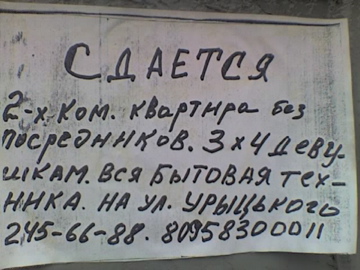 СДАЕТСЯ
2-х ком. квартира без
посредников. 3х4 деву-
шкам. вся бытовая тех-
ника. на ул. Урыцького
245-66-88. 80958300011